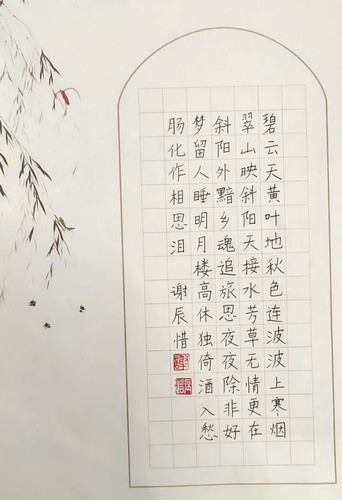 碧云天黄叶地秋色连波波上寒烟
翠山映斜阳天接水芳草无情更在
斜阳外黯乡魂追旅思夜夜除非好
梦留人睡明月楼高休独倚酒入愁
肠化作相思泪 谢辰惜